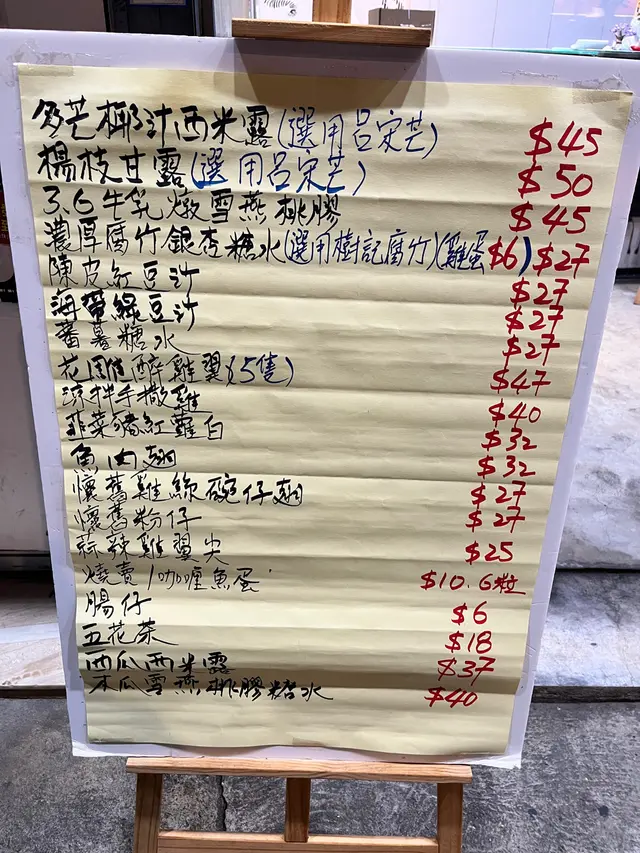 多芒椰汁西米露(選用呂宋芒) $45
楊枝甘露(選用呂宋芒) $50
3.6牛乳燉雪燕桃膠 $45
濃厚腐竹銀杏糖水(選用樹記腐竹)(雞蛋$6) $27
陳皮紅豆沙 $27
海帶綠豆沙 $27
蕃薯糖水 $27
花雕醉雞翼(5隻) $47
涼拌手撕雞 $40
韮菜豬紅蘿白 $32
魚肉翅 $32
懷舊雞絲碗仔翅 $27
懷舊粉仔 $27
蒜辣雞翼尖 $25
燒賣/咖喱魚蛋 $10.6粒
腸仔 $6
五花茶 $18
西瓜西米露 $37
木瓜雪燕桃膠糖水 $40